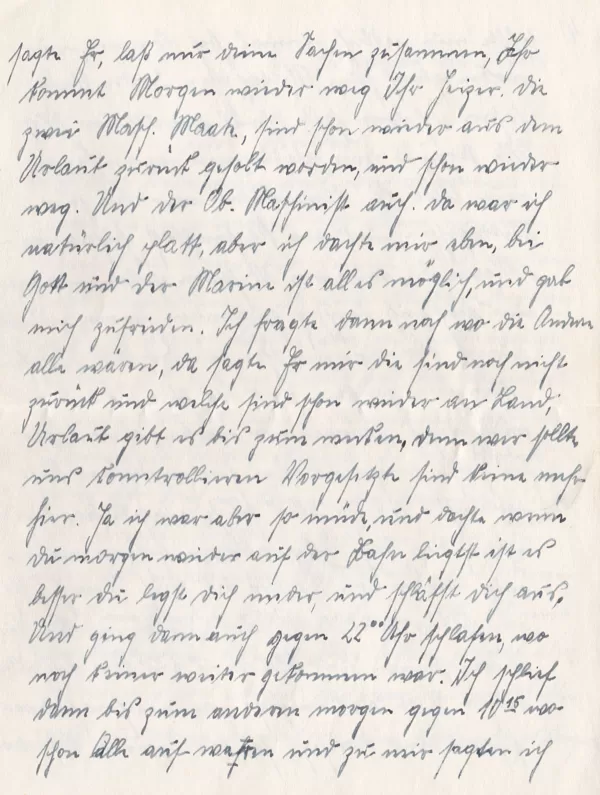 sagte Er, laß nur deine Sachen zusammen, Ihr
kommt Morgen wieder weg Ihr Heizer. Die
zwei Masch. Maate, sind schon wieder aus dem
Urlaub zurück geholt worden, und schon wieder
weg. Und der Ob. Maschinist auch. Da war ich
natürlich platt, aber ich dachte mir eben, bei
Gott und der Marine ist alles möglich, und gab
mich zufrieden. Ich fragte dann noch wo die Andern
alle wären, da sagte Er mir die sind noch nicht
zurück und welche sind schon wieder an Land,
Urlaub gibt es bis zum wecken, denn wer sollte
uns kontrollieren Vorgesetzte sind keine mehr
hier. Ja ich war aber so müde, und dachte wenn
Du morgen wieder auf der Bahn liegst ist es
besser du legst dich nieder, und schläfst dich aus.
Und ging dann auch gegen 22°° Uhr schlafen, wo
noch keiner weiter gekommen war. Ich schlief
dann bis zum anderen morgen gegen 10 15 wo
schon Alle auf waren und zu mir sagten ich